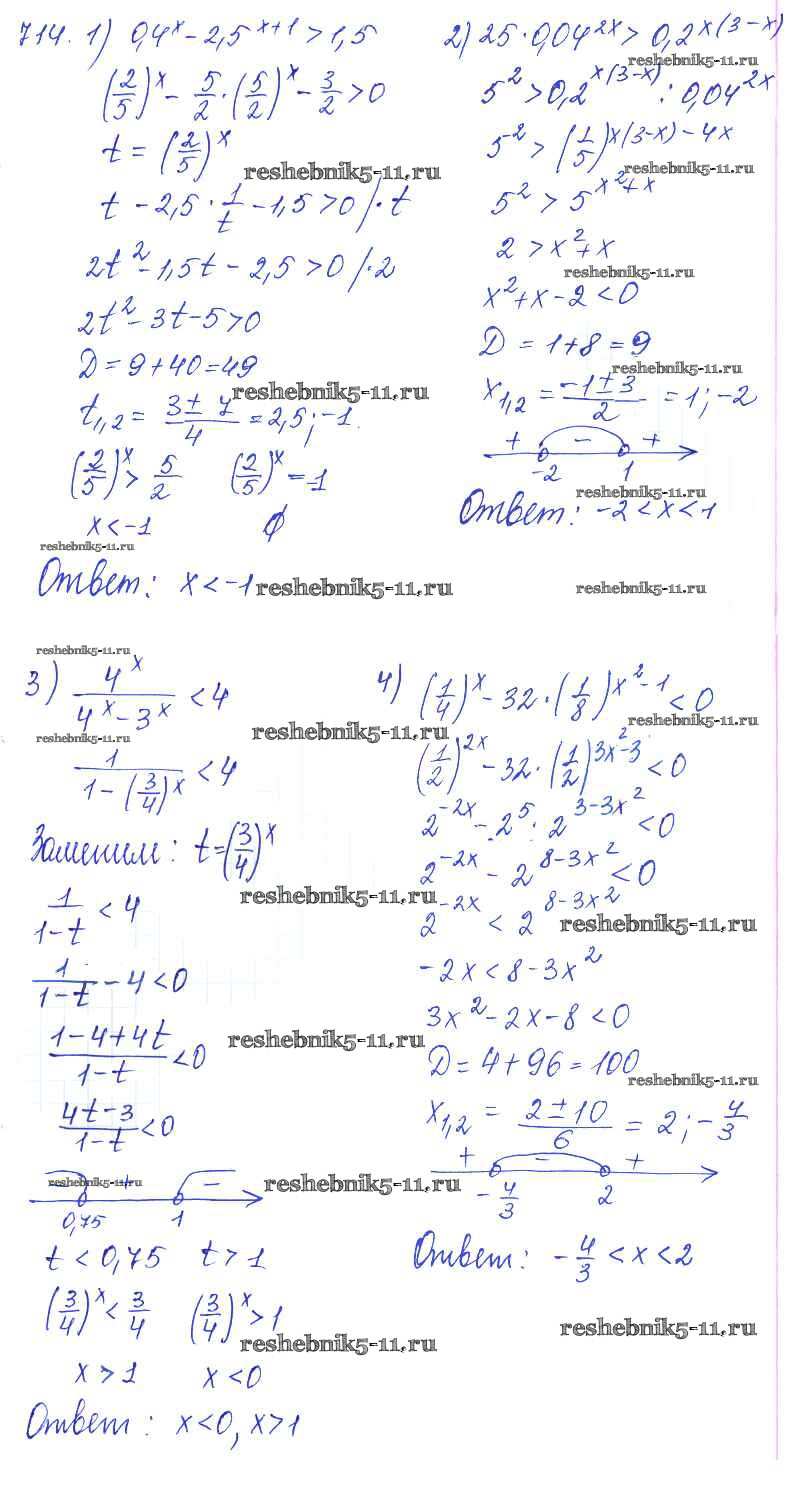 714. 1) 0,4^x - 2,5^(x+1) > 1,5
(2/5)^x - 5/2 · (5/2)^x - 3/2 > 0
t = (2/5)^x
reshebnik5-11.ru
t - 2,5 · 1/t - 1,5 > 0 /· t
2t² - 1,5t - 2,5 > 0 /·2
2t² - 3t - 5 > 0
D = 9 + 40 = 49
reshebnik5-11.ru
t1,2 = (3 ± 7)/4 = 2,5; -1.
(2/5)^x > 5/2 (2/5)^x = -1
x < -1 ∅
reshebnik5-11.ru
Ответ: x < -1
reshebnik5-11.ru
2) 25 · 0,04^(2x) > 0,2^(x(3-x))
reshebnik5-11.ru
5² > 0,2^(x(3-x)) : 0,04^(2x)
5^-2 > (1/5)^(x(3-x) - 4x)
reshebnik5-11.ru
5² > 5^(x²+x)
2 > x² + x
reshebnik5-11.ru
x² + x - 2 < 0
D = 1 + 8 = 9
reshebnik5-11.ru
x1,2 = (-1 ± 3)/2 = 1; -2
+ - +
-2 1
reshebnik5-11.ru
Ответ: -2 < x < 1
reshebnik5-11.ru
reshebnik5-11.ru
3) 4^x/(4^x - 3^x) < 4
reshebnik5-11.ru
reshebnik5-11.ru
1/(1 - (3/4)^x) < 4
Заменим: t = (3/4)^x
reshebnik5-11.ru
1/(1-t) < 4
1/(1-t) - 4 < 0
reshebnik5-11.ru
(1-4+4t)/(1-t) < 0
(4t-3)/(1-t) < 0
reshebnik5-11.ru
+ -
reshebnik5-11.ru
0,75 1
t < 0,75 t > 1
(3/4)^x < 3/4 (3/4)^x > 1
reshebnik5-11.ru
x > 1 x < 0
Ответ: x < 0, x > 1
4) (1/4)^x - 32 · (1/8)^(x²-1) < 0
reshebnik5-11.ru
(1/2)^(2x) - 32 · (1/2)^(3x²-3) < 0
2^(-2x) - 2^5 · 2^(3-3x²) < 0
2^(-2x) - 2^(8-3x²) < 0
2^(-2x) < 2^(8-3x²)
reshebnik5-11.ru
-2x < 8 - 3x²
3x² - 2x - 8 < 0
D = 4 + 96 = 100
reshebnik5-11.ru
x1,2 = (2 ± 10)/6 = 2; -4/3
+ - +
-4/3 2
Ответ: -4/3 < x < 2
reshebnik5-11.ru